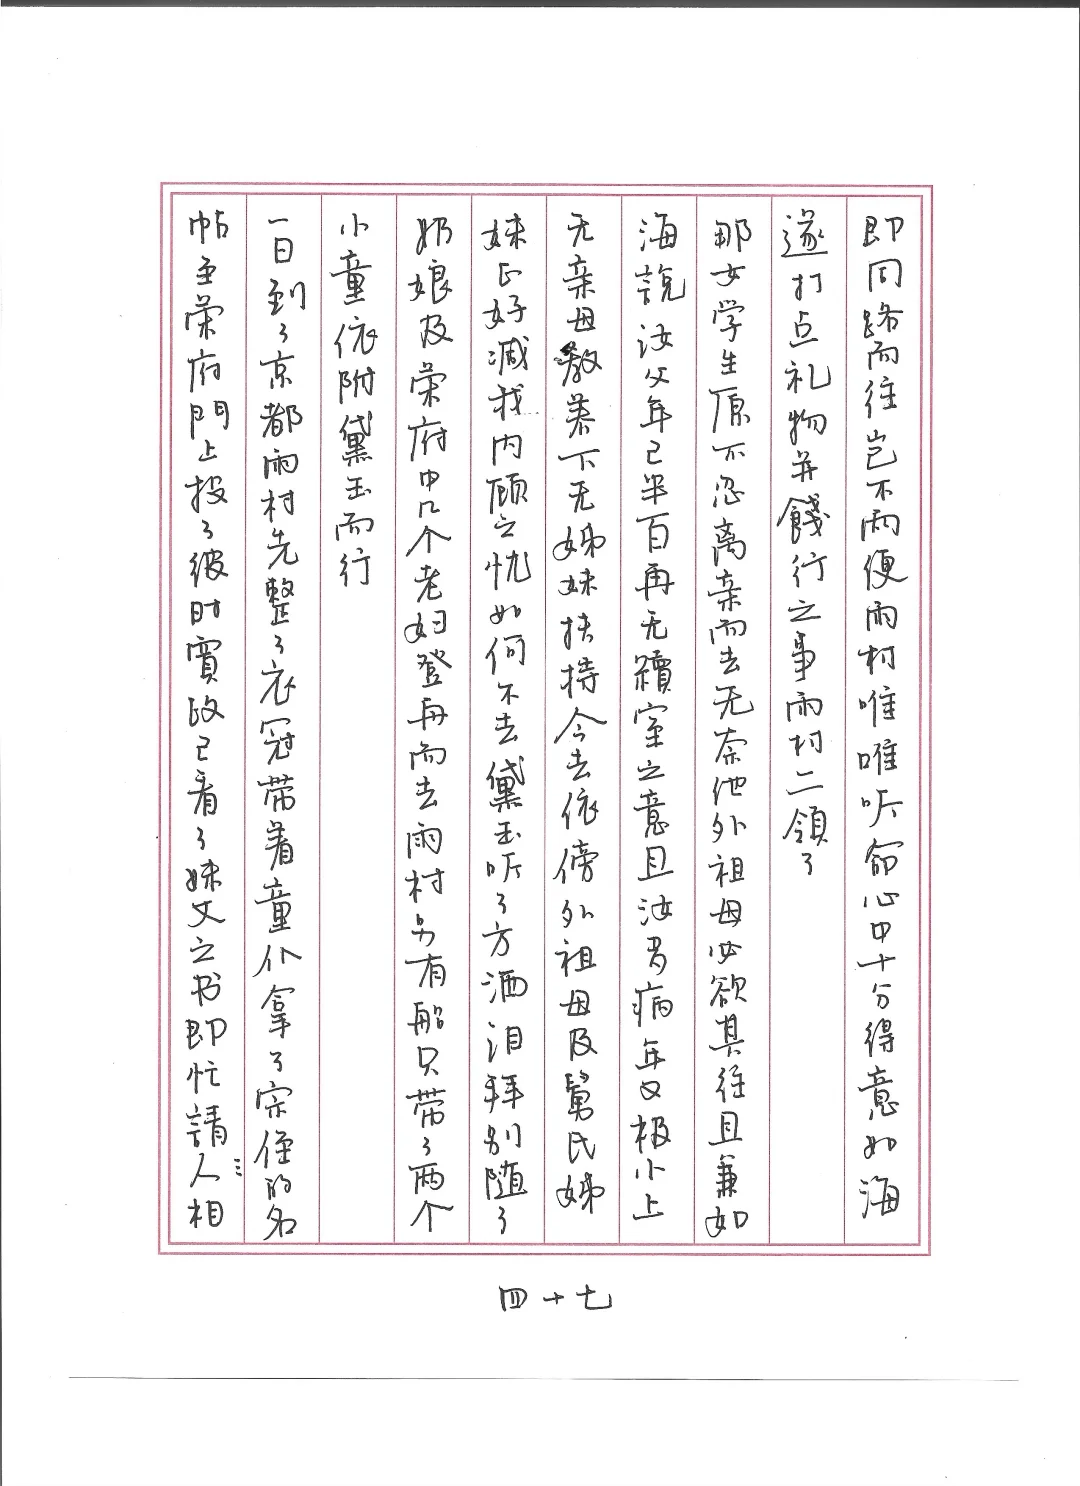 即同路而往岂不两便雨村唯唯听命心中十分得意如海
遂打点礼物并餞行之事雨村一一領了
那女学生原不忍离亲而去无奈他外祖母必欲其往且兼如
海說汝父年已半百再无續室之意且汝多病年又极小上
无亲母教养下无姊妹扶持今去依傍外祖母及舅氏姊
妹正好减我内顾之忧如何不去黛玉听了方洒泪拜别随了
奶娘及荣府中几个老妇登舟而去雨村另有船只带了两个
小童依附黛玉而行
一日到了京都雨村先整了衣冠带着童仆拿了宗侄的名
帖至荣府門上投了彼时賈政已看了妹丈之书即忙請人相
四十七